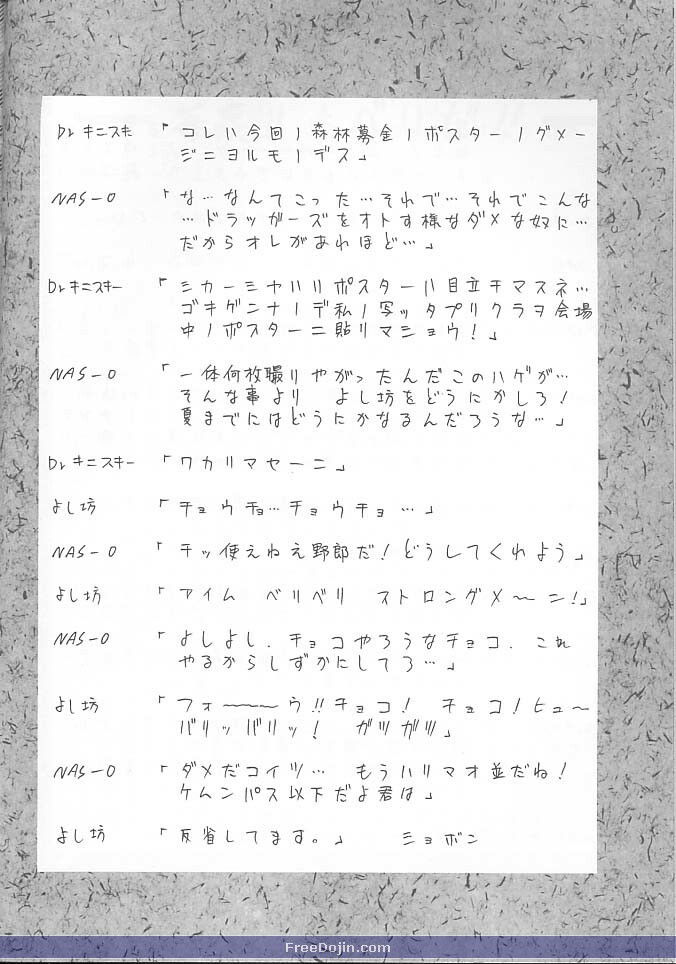 Dr キニスキ 「コレハ今回ノ森林募金ノポスターノダメー
ジニヨルモノデス」
NAS-O 「な…なんてこった…それで…それでこんな
…ドラッガーズをオトす様なダメな奴に…
だからオレがあれほど…」
Dr キニスキー 「シカーミヤハリポスターハ目立チマスネ…
ゴキゲンナノデ私ノ写ッタプリクラヲ会場
中ノポスターニ貼リマショウ!」
NAS-O 「一体何枚撮りやがったんだこのハゲが…
そんな事より よし坊をどうにかしろ!
夏までにはどうにかなるんだろうな…」
Dr キニスキー 「ワカリマセーニ」
よし坊 「チョウチョ…チョウチョ…」
NAS-O 「チッ使えねえ野郎だ!どうしてくれよう」
よし坊 「アイム ベリベリ ストロングメ〜ニ!」
NAS-O 「よしよし.チョコやろうなチョコ.これ
やるからしずかにしてろ…」
よし坊 「フォ〜〜〜ウ!!チョコ! チョコ!ヒュ〜
バリッバリッ! ガツガツ」
NAS-O 「ダメだコイツ… もうハリマオ並だね!
ケムンパス以下だよ君は」
よし坊 「反省してます。」 ショボン
FreeDojin.com